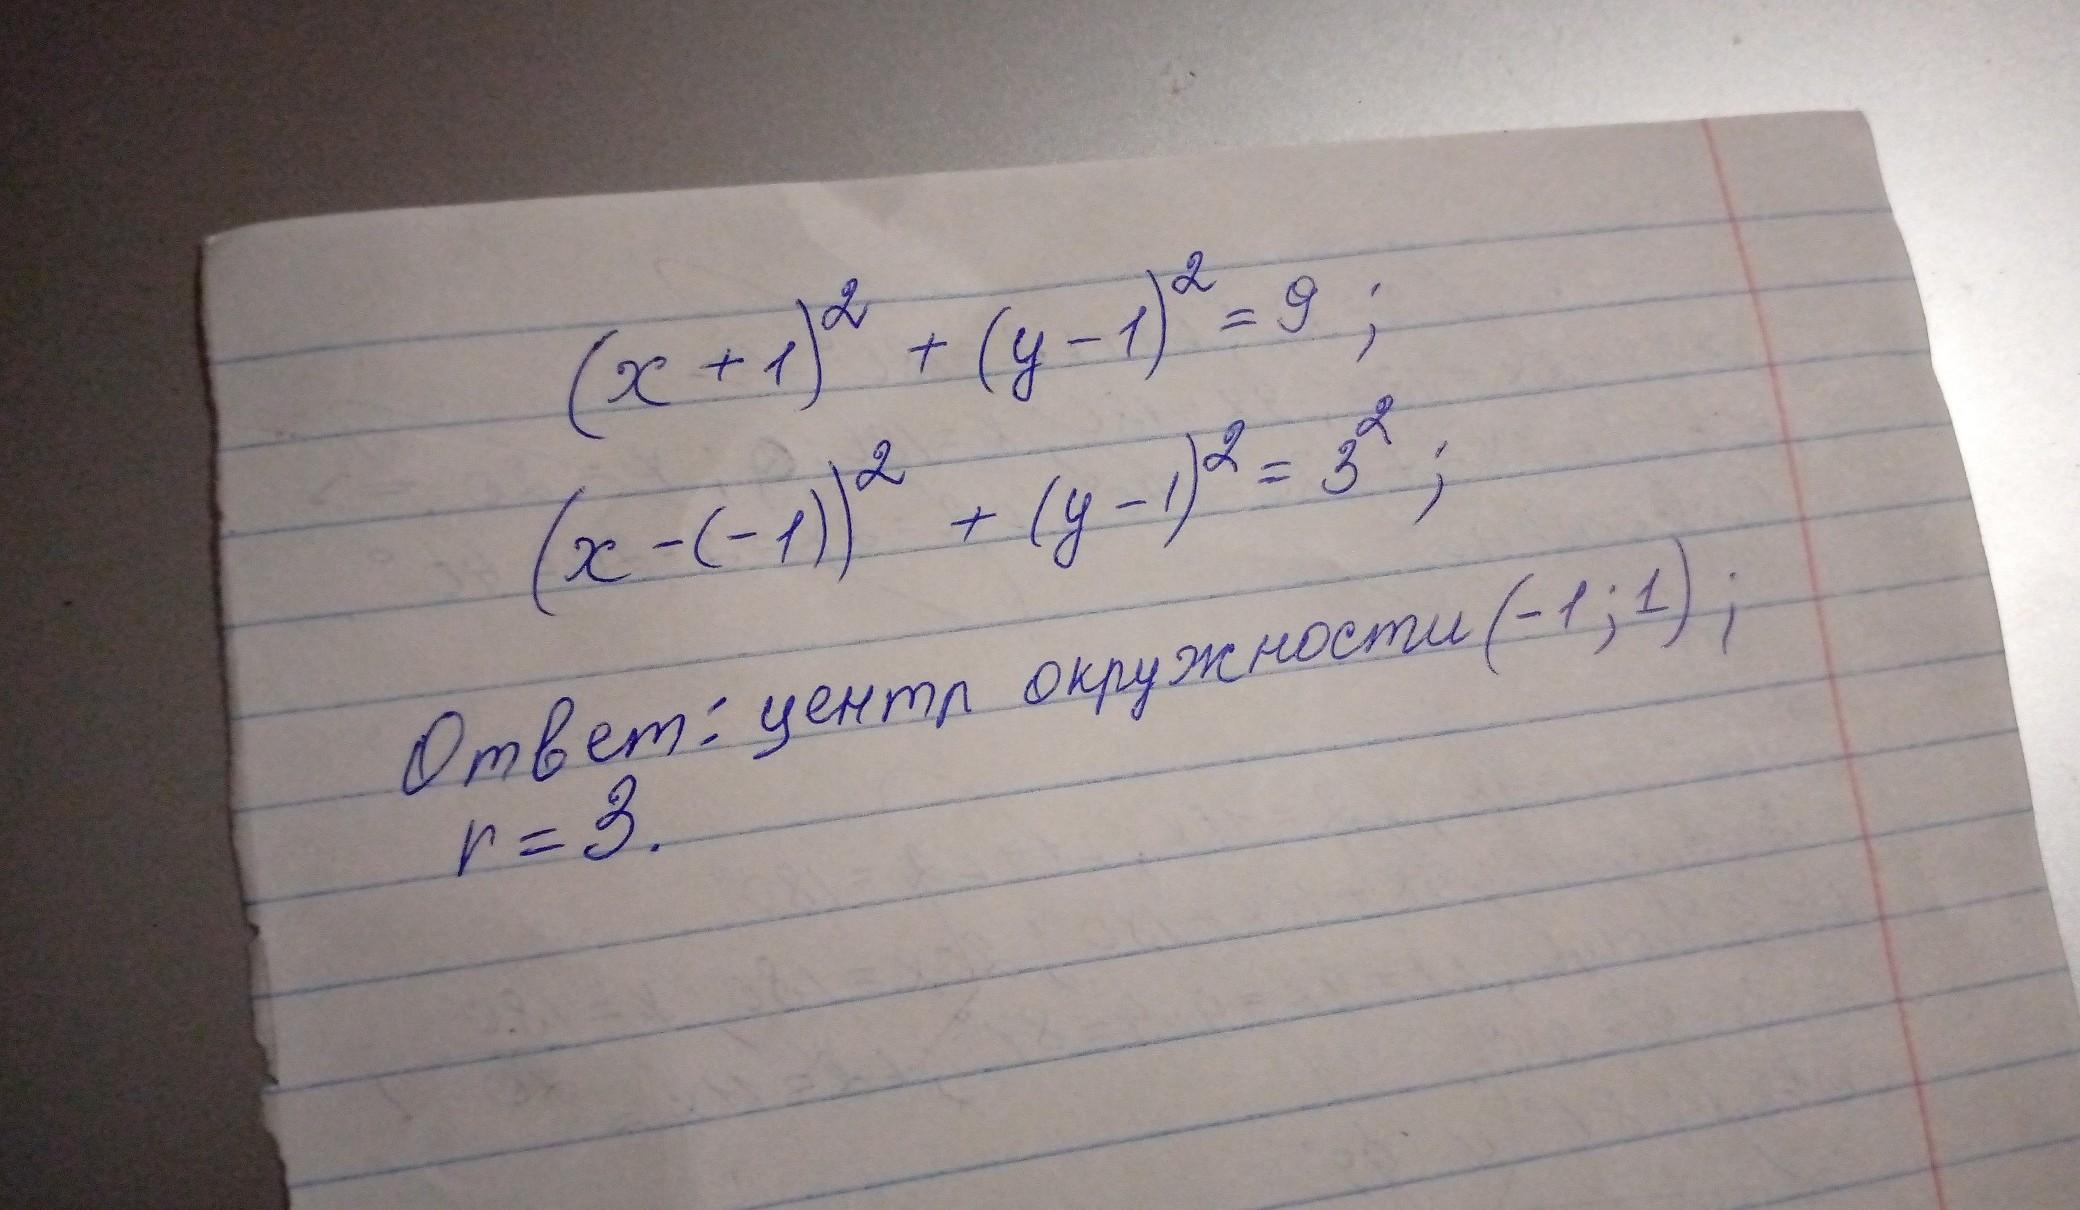 (x + 1)² + (y - 1)² = 9 ;
(x - (-1))² + (y - 1)² = 3² ;
Ответ: центр окружности (-1; 1) ;
r = 3.